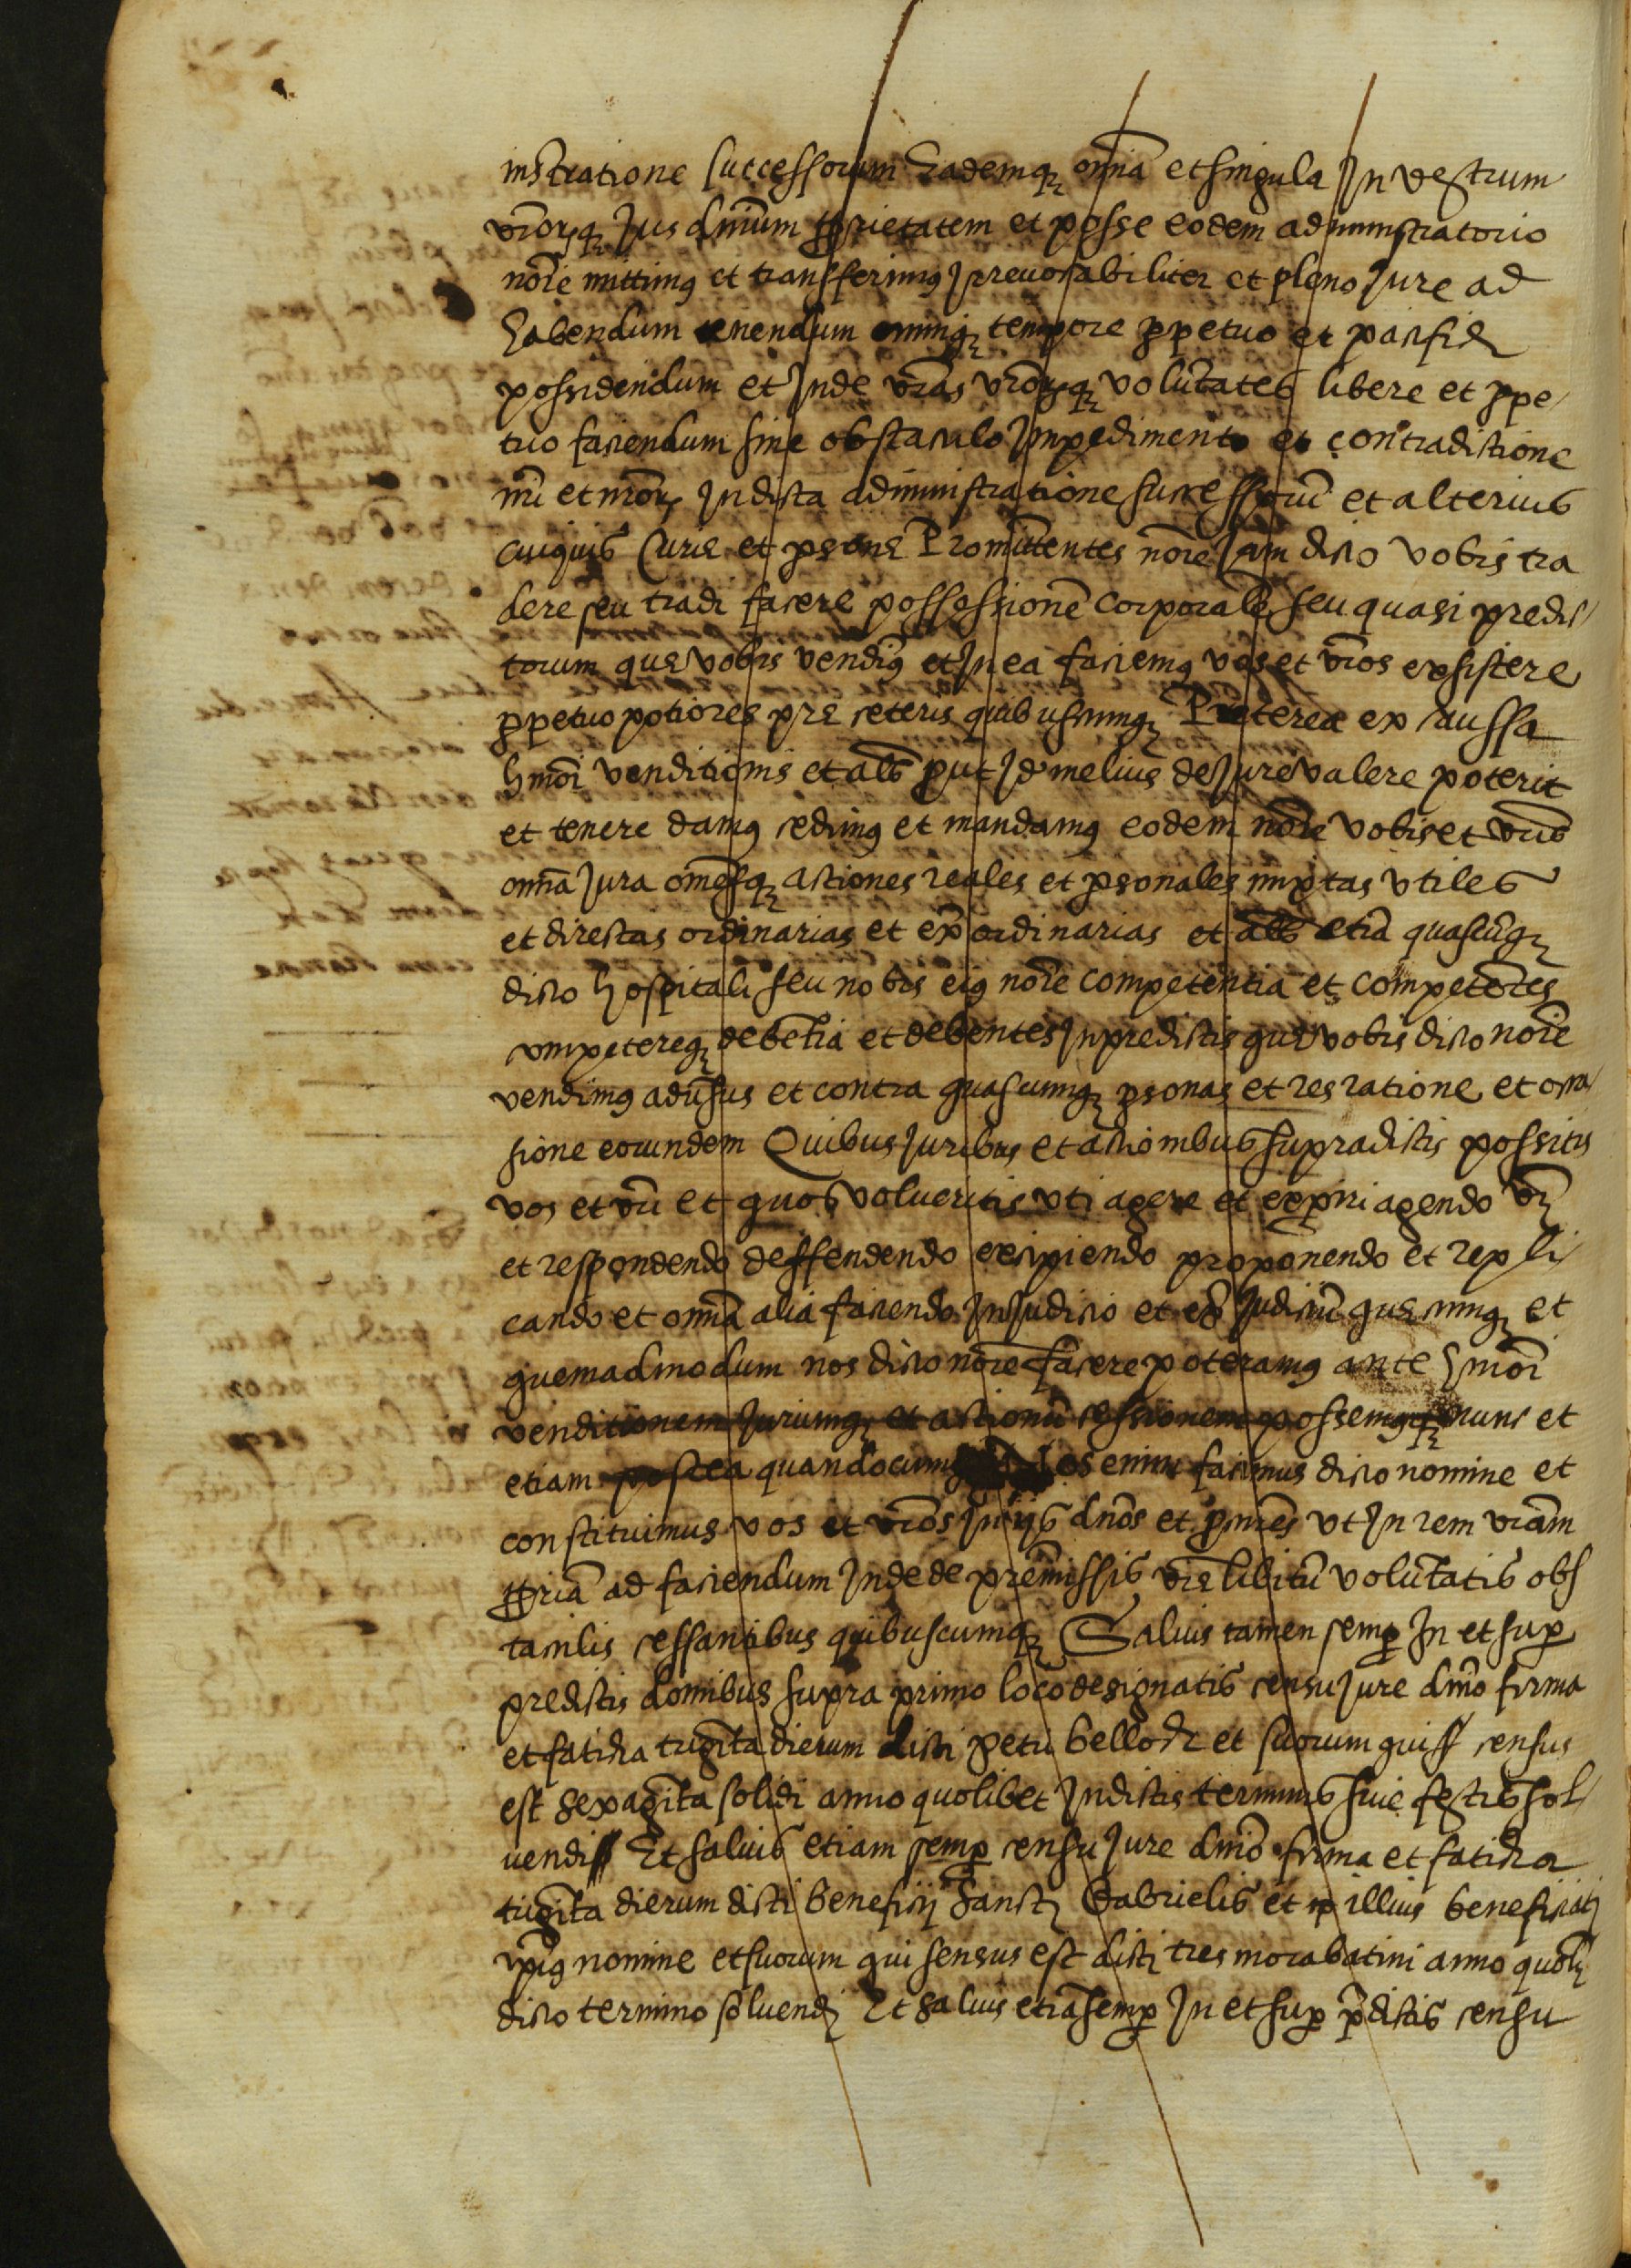 instratione successorum Eademqz omnia et singula In vestrum
vrorqz Jus dnium pprietatem et posse eodem administratorio
noie mittimus et transfferimus Irreuocabiliter et pleno Jure ad
habendum tenendum omniqz tempore ppetuo et pacifice
possidendum et Inde vras vrorqz voluntates libere et ppe/
tuo faciendum sine obstaculo Impedimento et contradictione
nri et nror In dicta administratione successorum et alterius
cuiquis Curie et psone Promittentes noie Jam dicto vobis tra
dere seu tradi facere possessionē corporalē seu quasi predic/
torum que vobis vendim9 et In ea faciem9 vos et vros exsistere
ppetuo potiores pre ceteris quibuscumqz Preterea ex caussa
hmoi venditionis et als put Id melius de Jure valere poterit
et tenere dam9 cedim9 et mandam9 eodem noie vobis et vris
omnia Jura omesqz actiones reales et psonales mixtas vtiles
et directas ordinarias et exordinarias et als etiā quascūqz
dicto hospitali seu nobis ei9 noie competentia et competētes
competereqz debētia et debentes In predictis que vobis dicto noie
vendim9 aduersus et contra quascumqz psonas et res ratione et occa/
sione eorundem Quibus Juribus et actionibus supradictis possitis
vos et vri et quos volueritis vti agere et expiri agendo
et respondendo deffendendo excipiendo proponendo et repli/
cando et omnia alia faciendo In Judicio et ex Judiciū quecumqz et
quemadmodum nos dicto noie facere poteram9 ante hmoi
venditionem Juriumqz et actionū cessionem possem9qz nunc et
etiam postea quandocumqz Nos enim facimus dicto nomine et
constituimus vos et vros In ijs dnos et pcures vt In rem vram
ppriā ad faciendum Inde de premissis vre libitū voluntatis obs
taculis cessantibus quibuscumqz Saluis tamen semp In et sup
predictis domibus supra primo loco designatis censu Jure dnio firma
et fatica trigīta dierum dicti petri bellod et suorum quiss census
est sexagīta solidi anno quolibet In dictis terminis siue festis sol/
uendiss Et saluis etiam semp censu Jure dnio firma et fatica
trigīta dierum dicti beneficij Sancti Gabrielis et illius beneficiati
ipi9 nomine et suorum qui sensus est dicti tres morabatini anno quolz
dicto termino soluendi Et saluis etiā semp In et sup pdictis censu